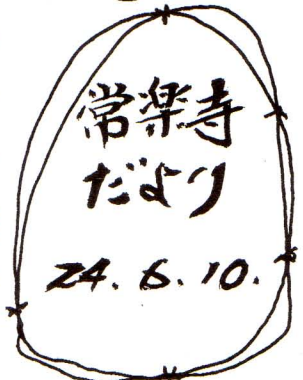 常楽寺
だより
24.6.10.